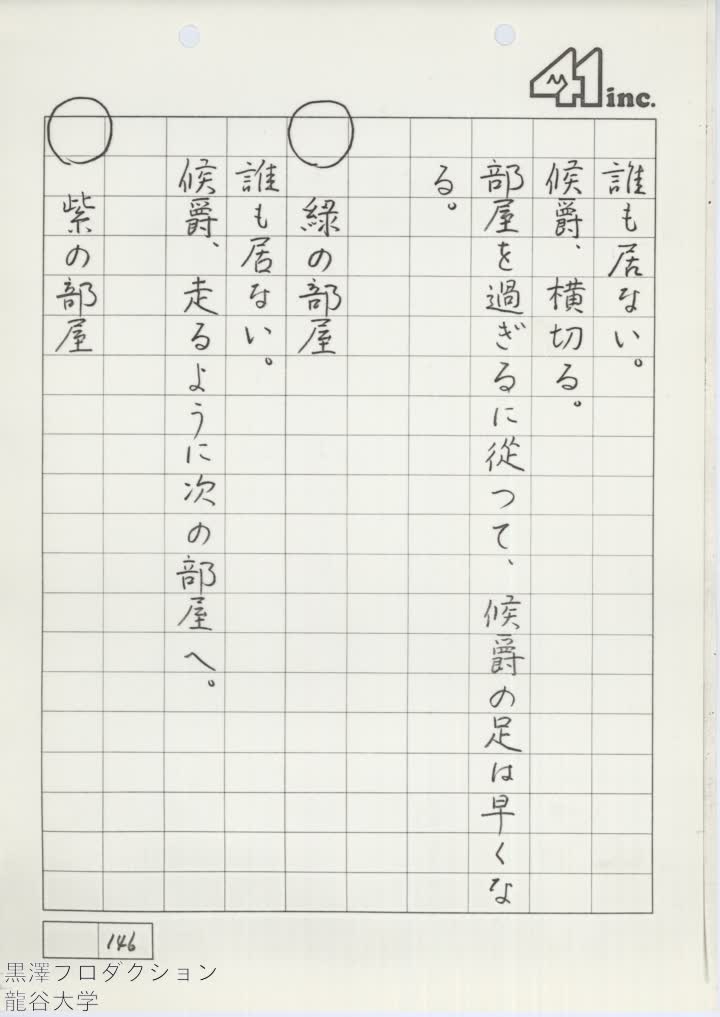 41 inc.
誰も居ない。
候爵、横切る。
部屋を過ぎるに従つて、候爵の足は早くな
る。
○ 緑の部屋
誰も居ない。
候爵、走るように次の部屋へ。
○ 紫の部屋
146
黒澤プロダクション
龍谷大学